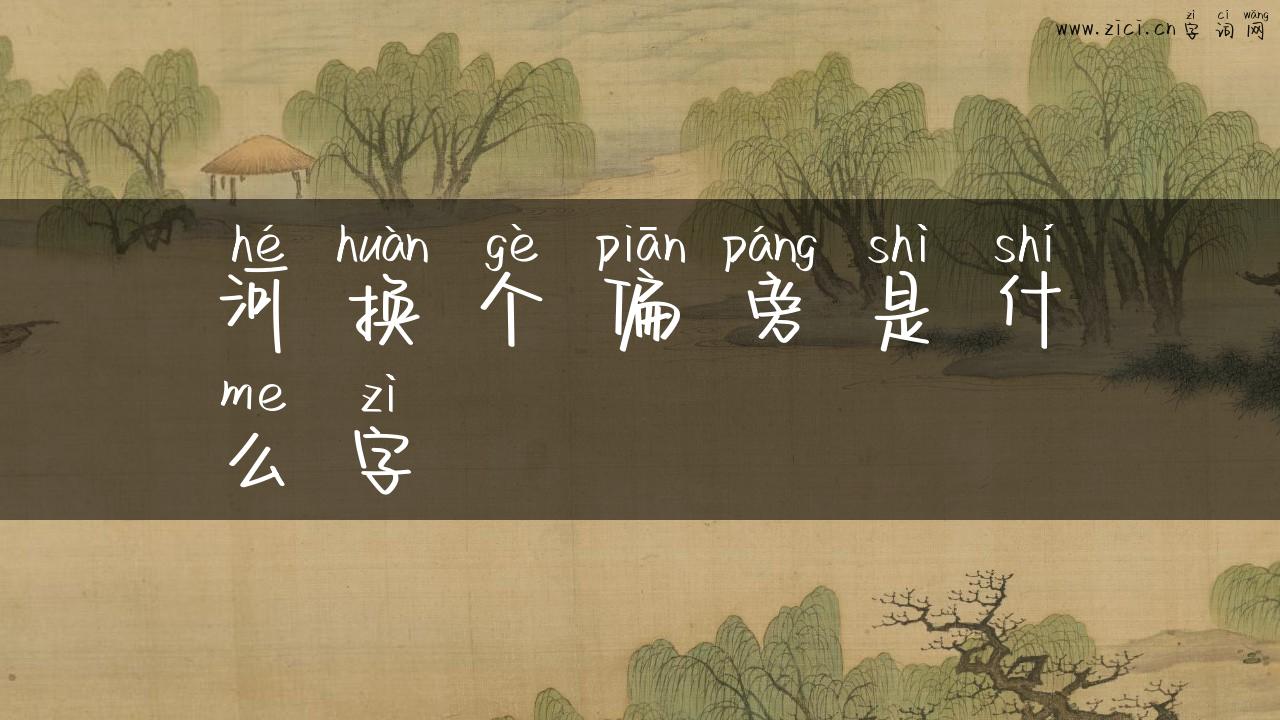 zì cí wǎng
www.zici.cn 字词网
hé huàn gè piān páng shì shí
河换个偏旁是什
me zì
么字